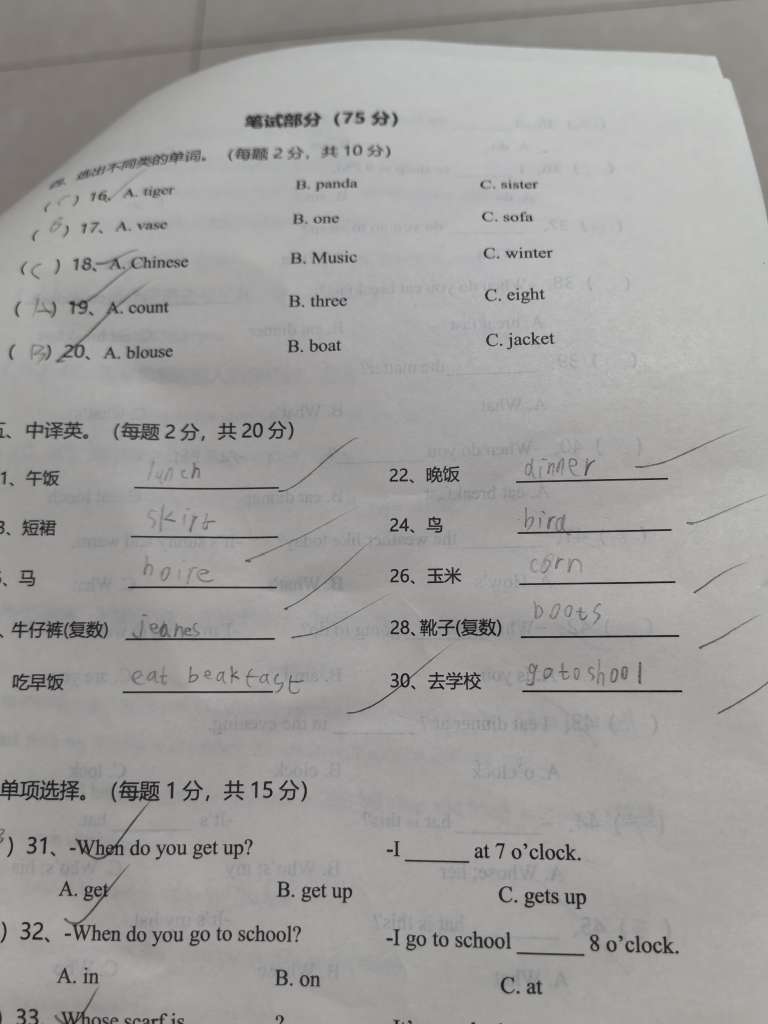 笔试部分（75 分）
四、选出不同类的单词。（每题 2 分，共 10 分）
( C ) 16、A. tiger B. panda C. sister
( B ) 17、A. vase B. one C. sofa
( C ) 18、A. Chinese B. Music C. winter
( A ) 19、A. count B. three C. eight
( B ) 20、A. blouse B. boat C. jacket
五、中译英。（每题 2 分，共 20 分）
1、午饭 lunch 22、晚饭 dinner
3、短裙 skirt 24、鸟 bird
、马 hoire 26、玉米 corn
、牛仔裤(复数) jeanes 28、靴子(复数) boots
吃早饭 eat beakfast 30、去学校 go to shool
单项选择。（每题 1 分，共 15 分）
) 31、-When do you get up? -I ______ at 7 o'clock.
A. get B. get up C. gets up
) 32、-When do you go to school? -I go to school ______ 8 o'clock.
A. in B. on C. at
) 33、Whose scarf is ?